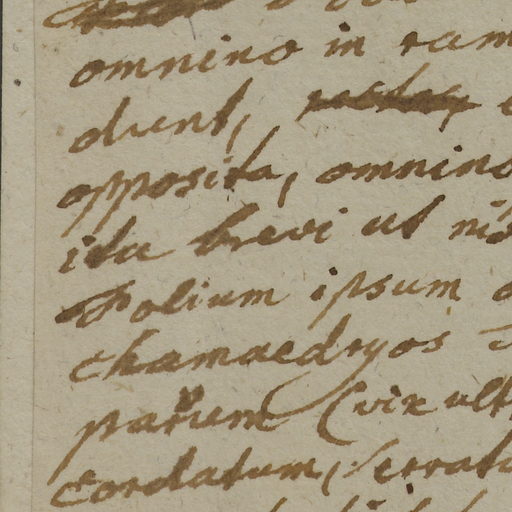 omnino in ram
dunt,
opposita, omnino
ita brevi ut
Folium ipsum
chamaedryos
parum (vix ult
Cordatum, Serrat